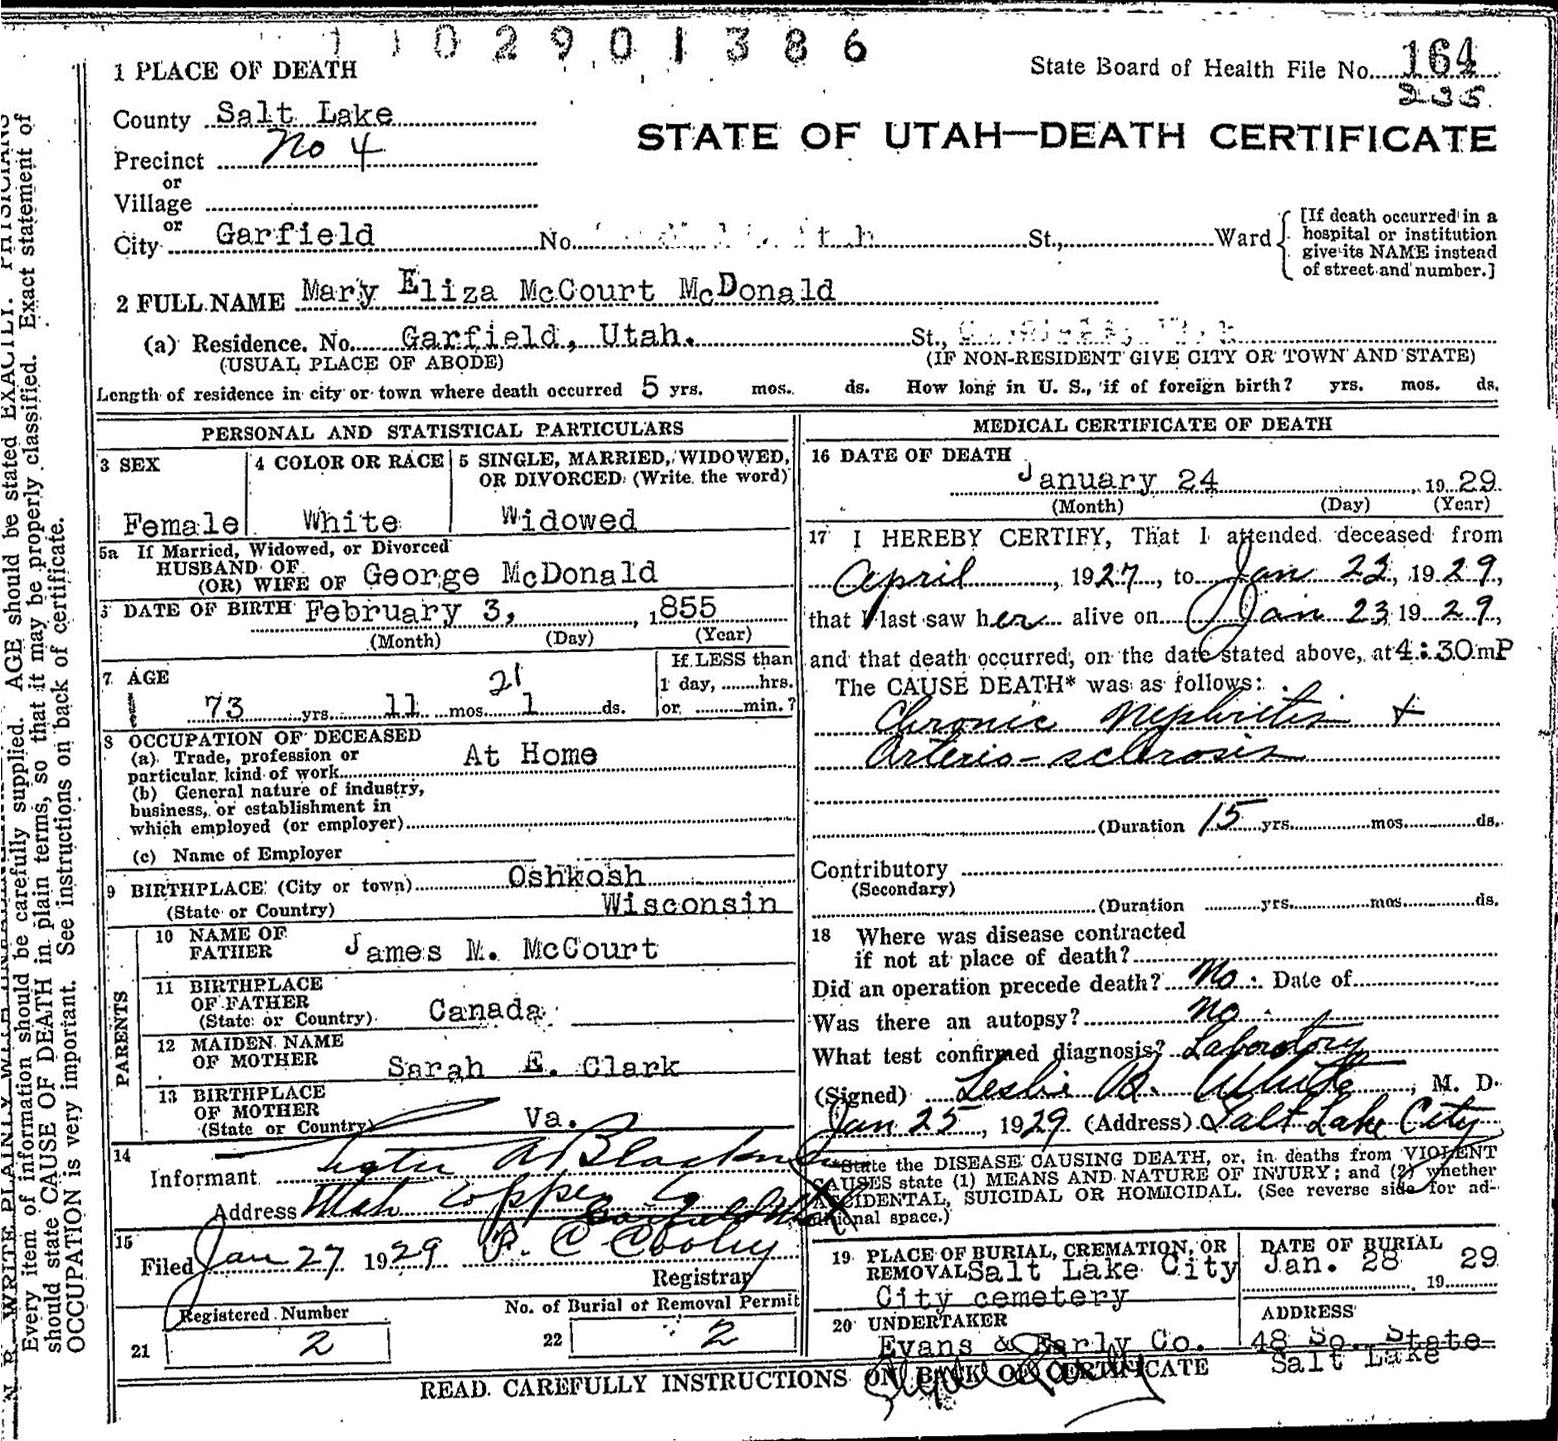 1 1 0 2 9 0 1 3 8 6
1 PLACE OF DEATH
State Board of Health File No. 164
235
County Salt Lake
STATE OF UTAH—DEATH CERTIFICATE
Precinct No 4
or
Village
or
City Garfield No. St., Ward
[If death occurred in a
hospital or institution
give its NAME instead
of street and number.]
2 FULL NAME Mary Eliza McCourt McDonald
(a) Residence. No. Garfield, Utah. St.,
(USUAL PLACE OF ABODE) (IF NON-RESIDENT GIVE CITY OR TOWN AND STATE)
Length of residence in city or town where death occurred 5 yrs. mos. ds. How long in U. S., if of foreign birth? yrs. mos. ds.
PERSONAL AND STATISTICAL PARTICULARS
3 SEX 4 COLOR OR RACE 5 SINGLE, MARRIED, WIDOWED,
OR DIVORCED (Write the word)
Female White Widowed
5a If Married, Widowed, or Divorced
HUSBAND OF
(OR) WIFE OF George McDonald
DATE OF BIRTH February 3, 1855
(Month) (Day) (Year)
7 AGE 21
73 yrs. 11 mos. 1 ds.
If LESS than
1 day, ......hrs.
or ......min.?
8 OCCUPATION OF DECEASED
(a) Trade, profession or
particular kind of work At Home
(b) General nature of industry,
business, or establishment in
which employed (or employer)
(c) Name of Employer
9 BIRTHPLACE (City or town) Oshkosh
(State or Country) Wisconsin
PARENTS
10 NAME OF
FATHER James M. McCourt
11 BIRTHPLACE
OF FATHER
(State or Country) Canada
12 MAIDEN NAME
OF MOTHER Sarah E. Clark
13 BIRTHPLACE
OF MOTHER
(State or Country) Va.
14
Informant
Address Utah Copper Co
Garfield Utah
15
Filed Jan 27 1929
Registrar
Registered Number No. of Burial or Removal Permit
21 2 22 2
MEDICAL CERTIFICATE OF DEATH
16 DATE OF DEATH
January 24, 1929
(Month) (Day) (Year)
17 I HEREBY CERTIFY, That I attended deceased from
April, 1927, to Jan 23, 1929,
that I last saw her alive on Jan 23 1929,
and that death occurred, on the date stated above, at 4:30 mP
The CAUSE DEATH* was as follows:
Chronic Nephritis +
Arterio-sclerosis
(Duration 15 yrs. mos. ds.
Contributory
(Secondary)
(Duration yrs. mos. ds.
18 Where was disease contracted
if not at place of death?
Did an operation precede death? No. Date of
Was there an autopsy? No
What test confirmed diagnosis? Laboratory
(Signed) Leslie B. White, M. D.
Jan 25, 1929 (Address) Salt Lake City
State the DISEASE CAUSING DEATH, or, in deaths from VIOLENT
CAUSES state (1) MEANS AND NATURE OF INJURY; and (2) whether
ACCIDENTAL, SUICIDAL OR HOMICIDAL. (See reverse side for ad-
ditional space.)
19 PLACE OF BURIAL, CREMATION, OR
REMOVAL Salt Lake City
City cemetery
DATE OF BURIAL
Jan. 28 1929
20 UNDERTAKER
Evans & Early Co.
ADDRESS
48 So. State
Salt Lake
READ CAREFULLY INSTRUCTIONS ON BACK OF CERTIFICATE
Every item of information should be carefully supplied. AGE should be stated EXACTLY. PHYSICIANS
should state CAUSE OF DEATH in plain terms, so that it may be properly classified. Exact statement of
OCCUPATION is very important. See instructions on back of certificate.